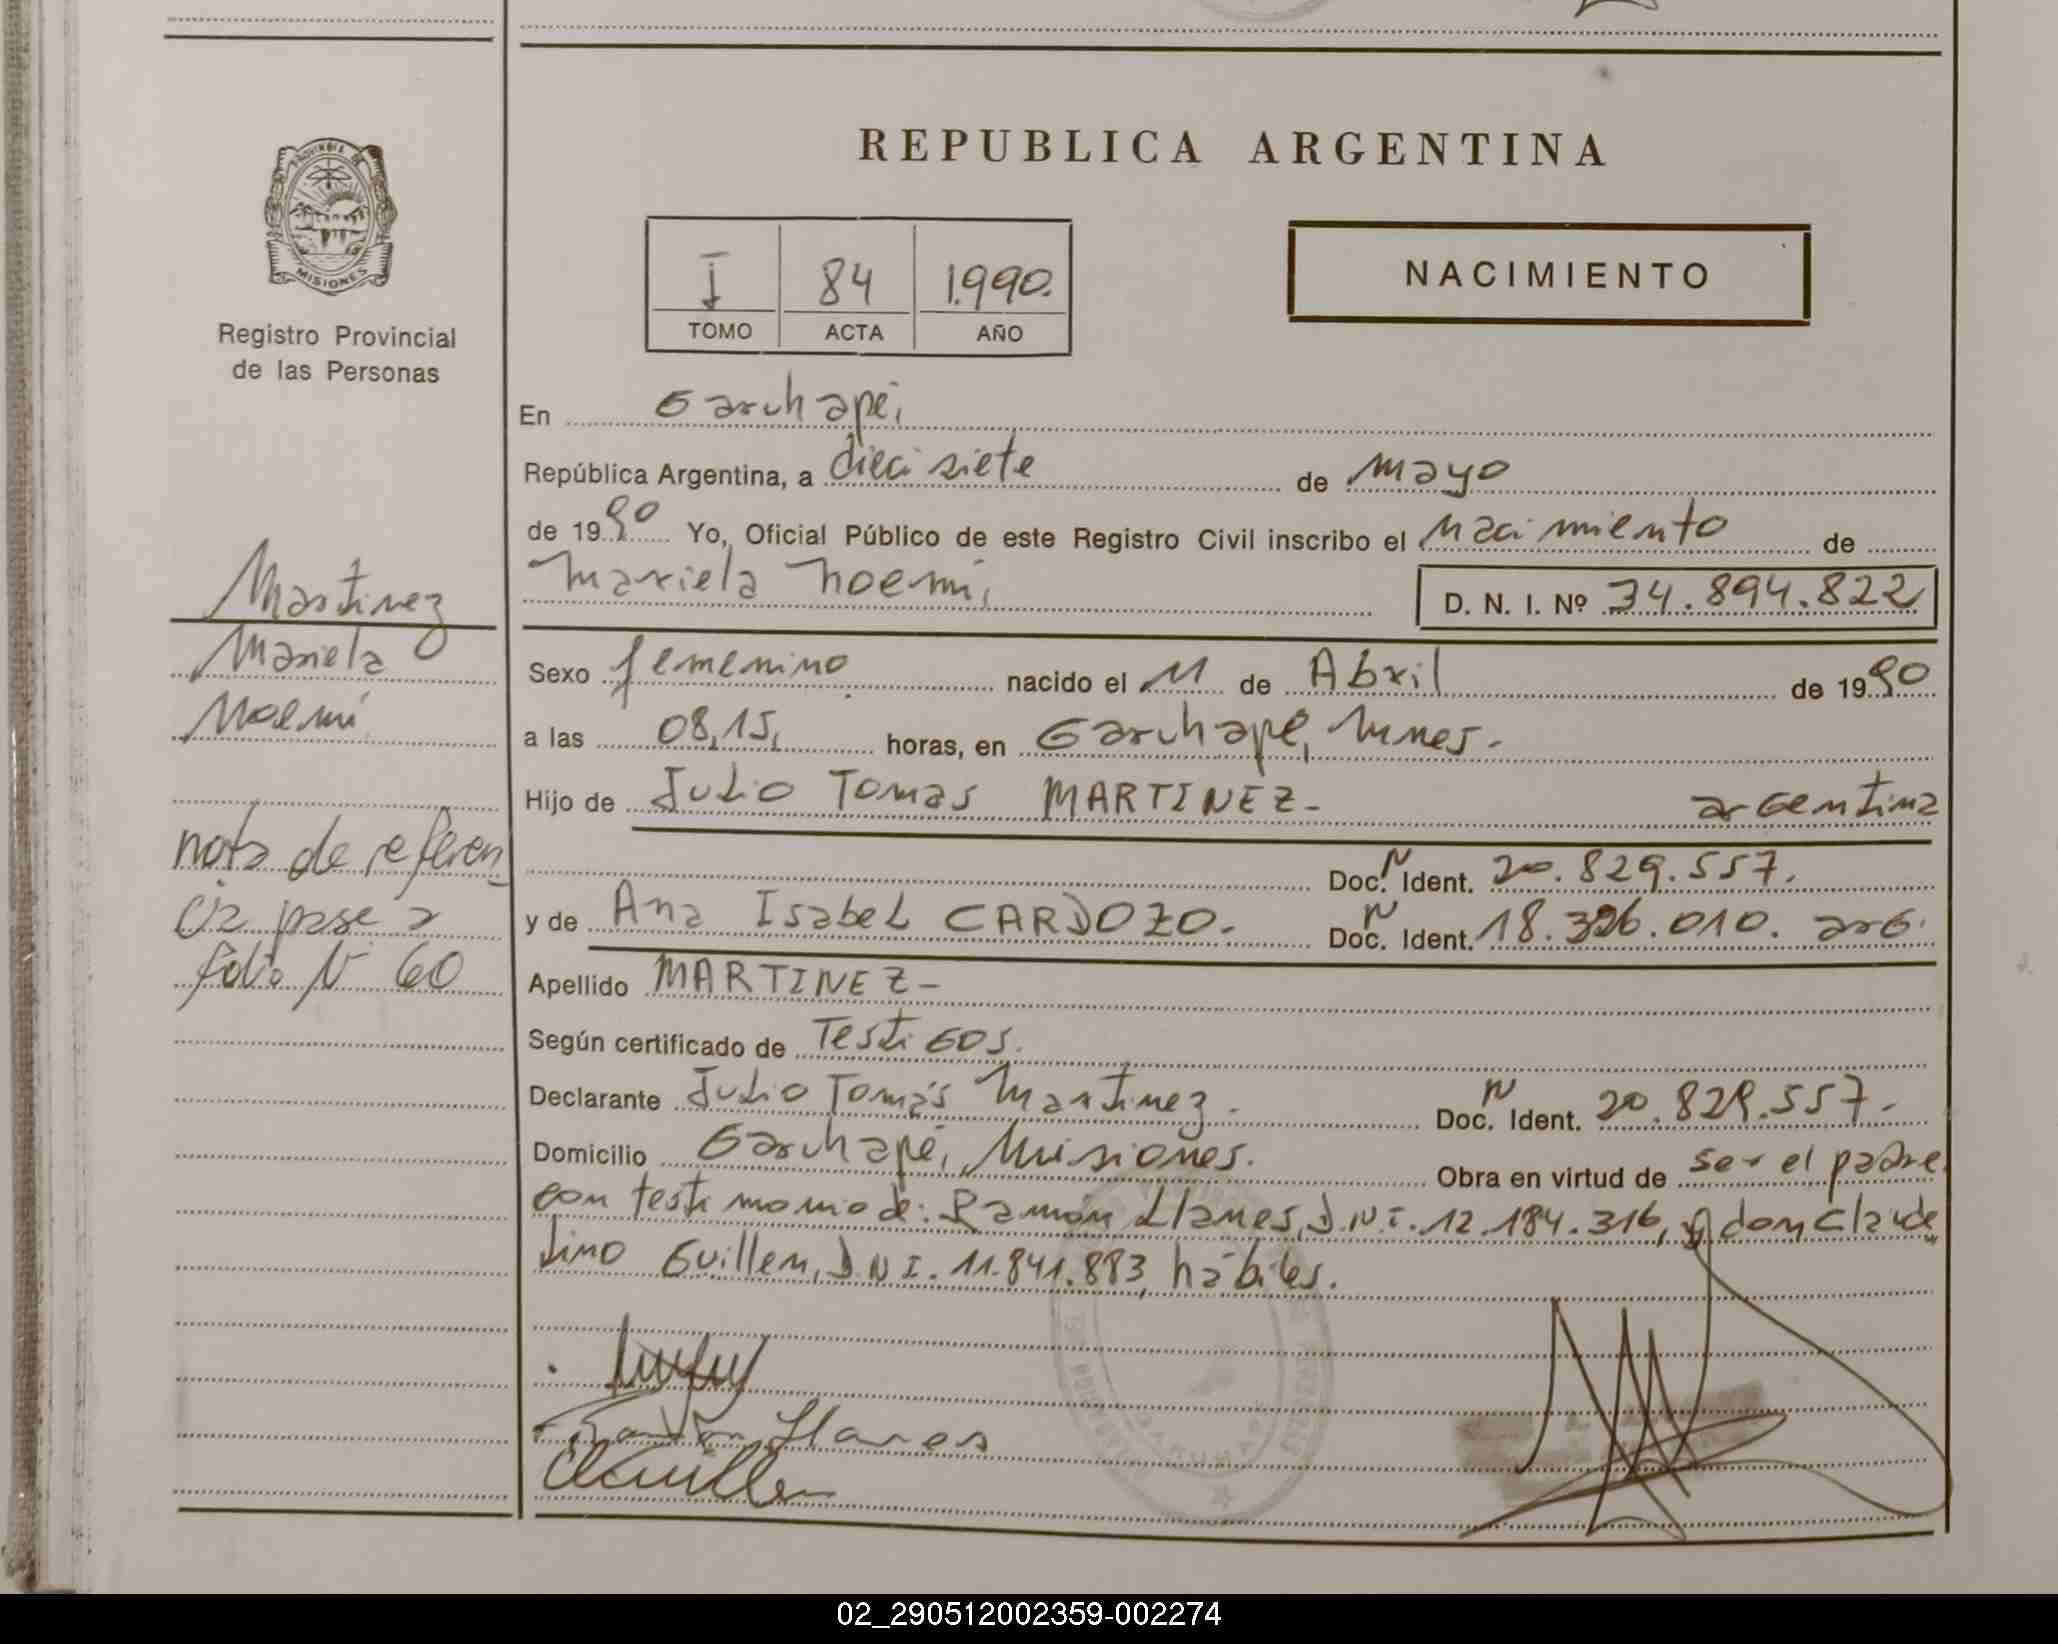 PROVINCIA DE
MISIONES
Registro Provincial
de las Personas
REPUBLICA ARGENTINA
I 84 1.990.
TOMO ACTA AÑO
NACIMIENTO
En Garuhapé,
República Argentina, a dieci siete de mayo
de 1990 Yo, Oficial Público de este Registro Civil inscribo el nacimiento de
Mariela Noemí, D. N. I. Nº 34.894.822
Sexo femenino nacido el 11 de Abril de 1990
a las 08,15, horas, en Garuhapé, Mnes.
Hijo de Julio Tomas MARTINEZ- argentina
Doc. N Ident. 20.829.557.
y de Ana Isabel CARDOZO. Doc. N Ident. 18.326.010. arG.
Apellido MARTINEZ-
Según certificado de TestiGos.
Declarante Julio Tomás Martinez. Doc. N Ident. 20.829.557.-
Domicilio Garuhapé, Misiones. Obra en virtud de ser el padre.
con testimonio de: Ramón Llanes, D.N.I. 12.184.316, y don Claude
lino Guillen, D.N.I. 11.841.883, hábiles.
Ramón Llanes
Martinez
Mariela
Noemí
nota de referen
cia pase a
folio Nº 60
GARUHAPE
02_290512002359-002274